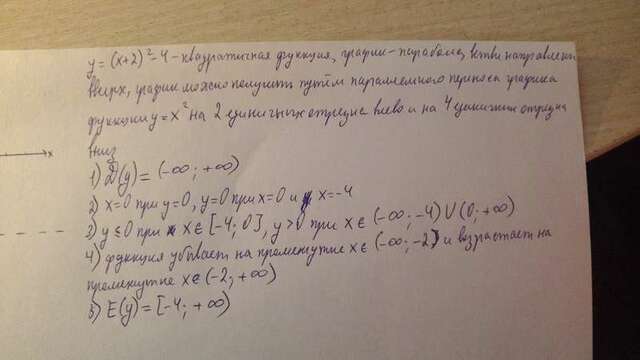 y = (x+2)² - 4 - квадратичная функция, график - парабола, ветви направлены
вверх, график можно получить путём параллельного переноса графика
функции y = x² на 2 единичных отрезка влево и на 4 единичных отрезка
вниз
x
1) D(y) = (-∞; +∞)
2) x=0 при y=0, y=0 при x=0 и x=-4
3) y ≤ 0 при x ∈ [-4; 0], y > 0 при x ∈ (-∞; -4) U (0; +∞)
4) функция убывает на промежутке x ∈ (-∞; -2) и возрастает на
промежутке x ∈ (-2; +∞)
5) E(y) = [-4; +∞)